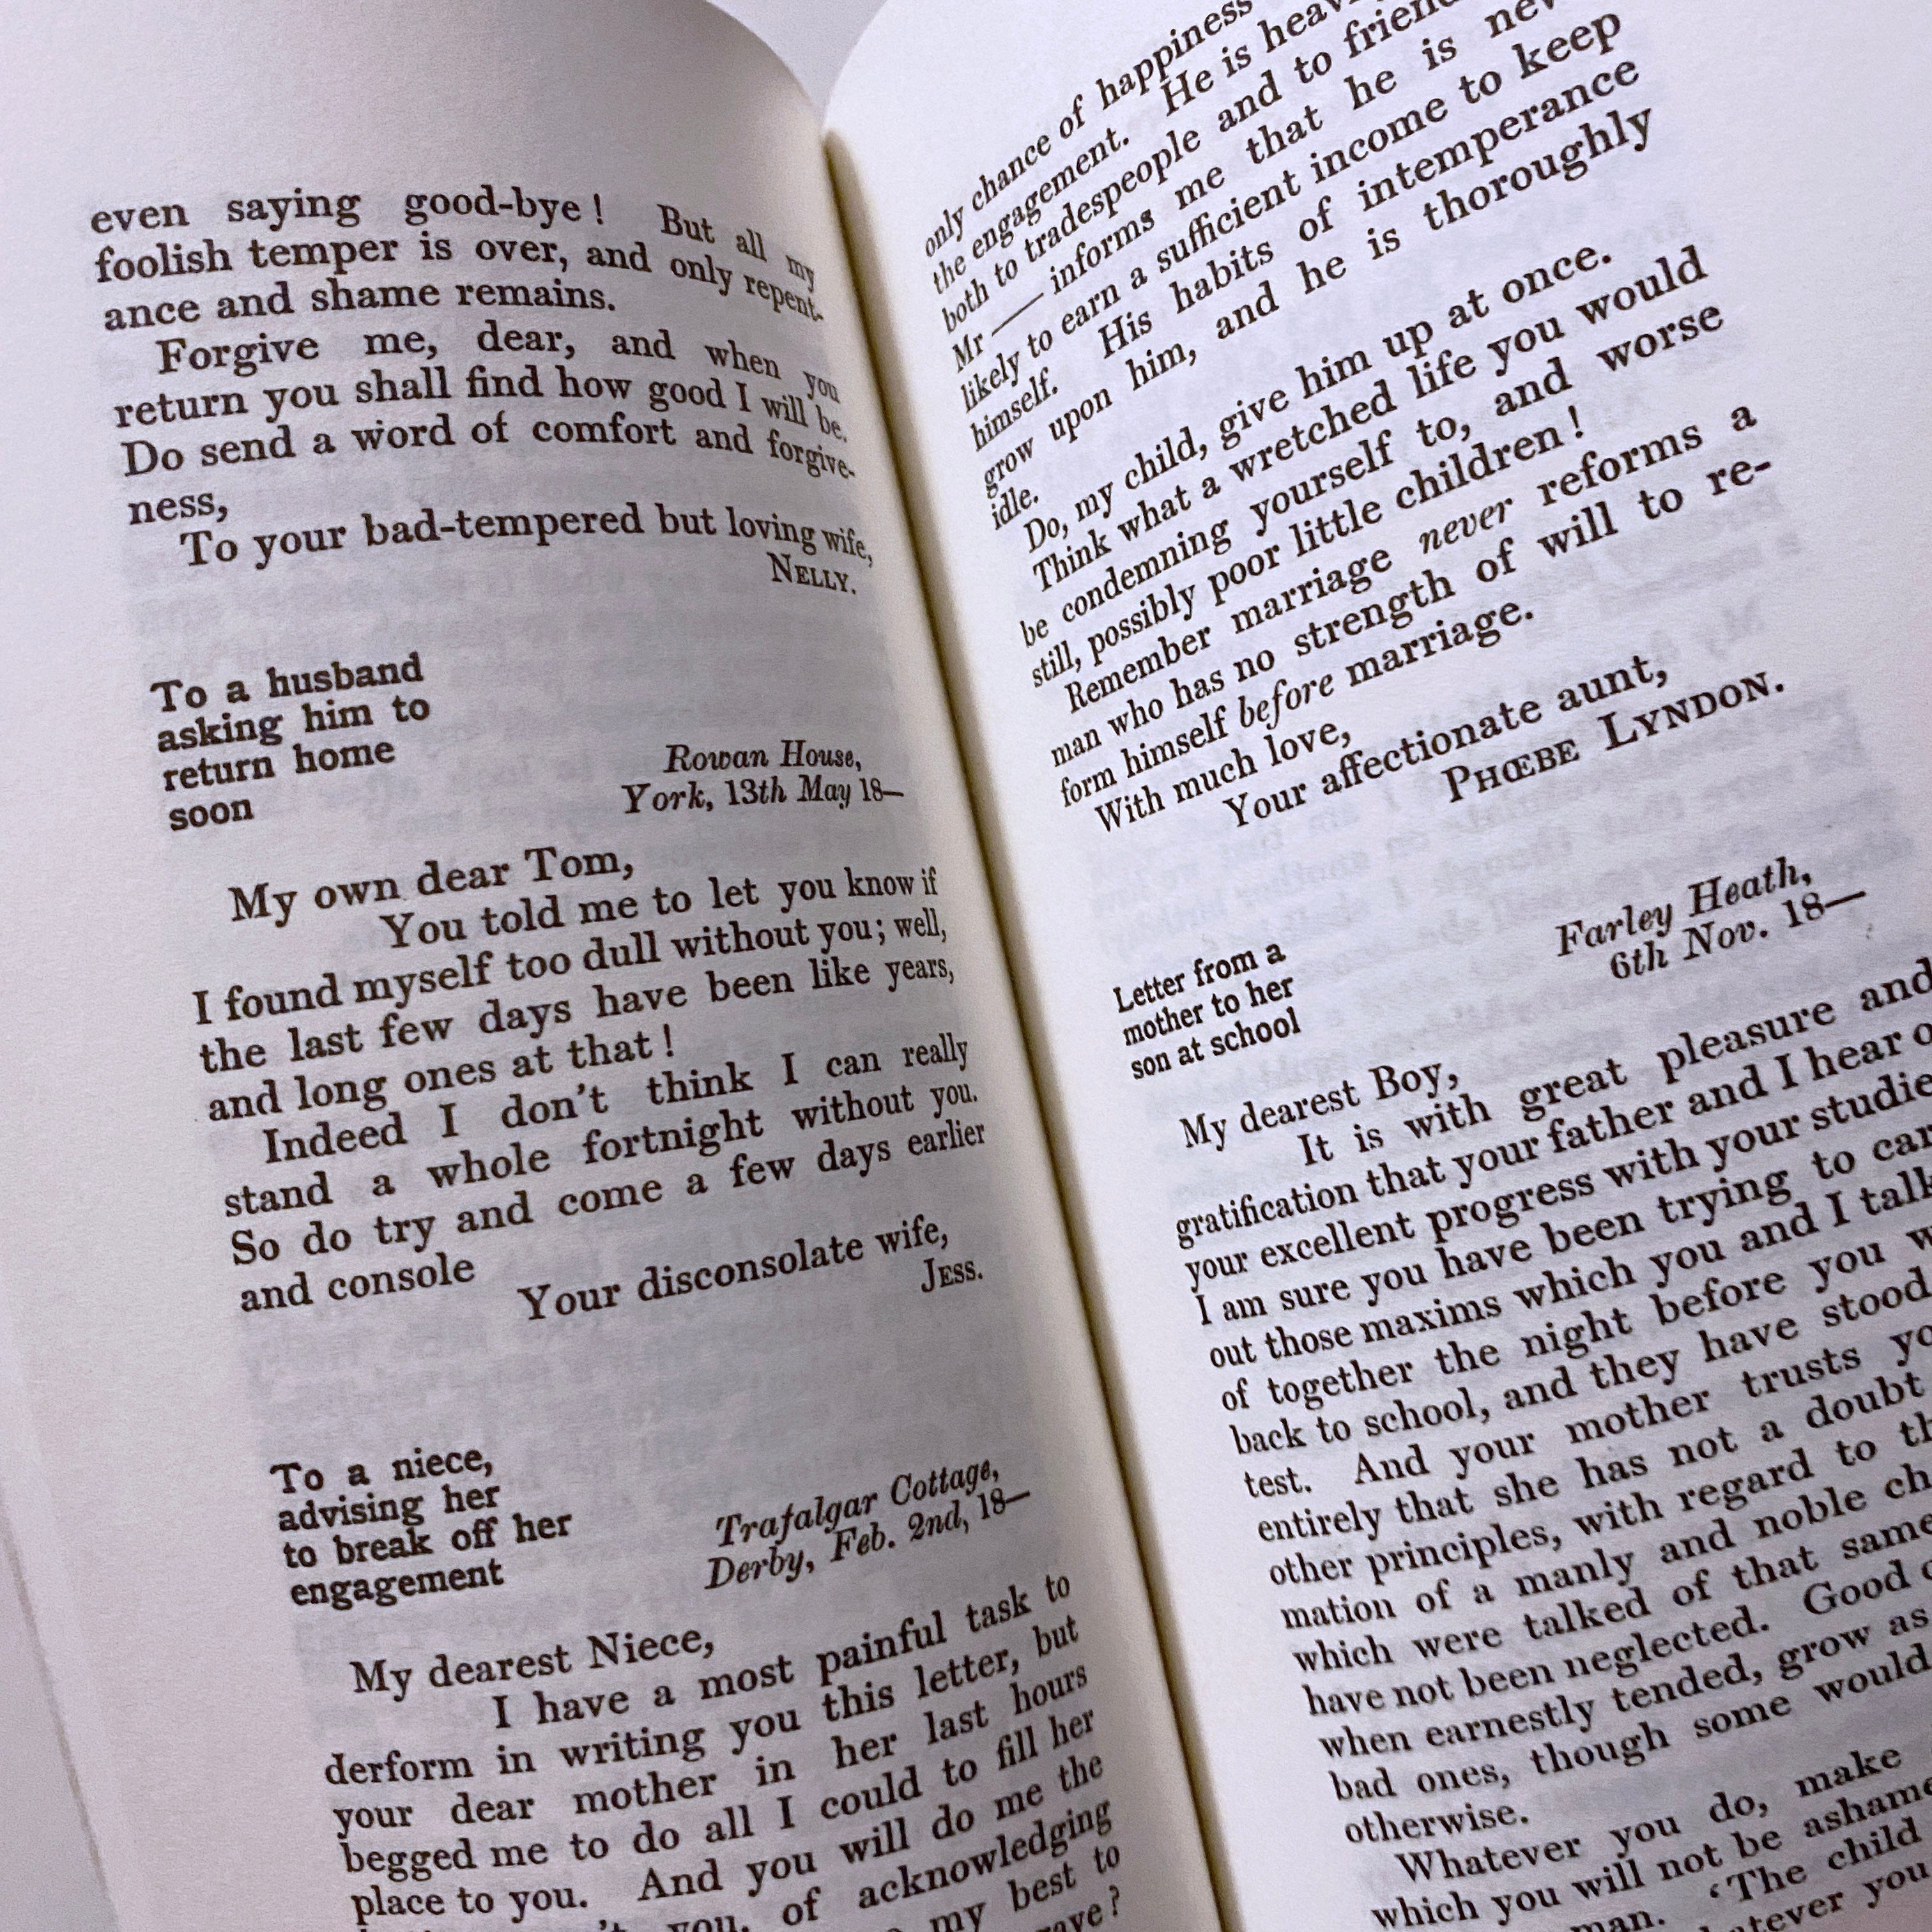 even saying good-bye! But all my
foolish temper is over, and only repent-
ance and shame remains.
Forgive me, dear, and when you
return you shall find how good I will be.
Do send a word of comfort and forgive-
ness,
To your bad-tempered but loving wife,
NELLY.
To a husband
asking him to
return home
soon
Rowan House,
York, 13th May 18—
My own dear Tom,
You told me to let you know if
I found myself too dull without you; well,
the last few days have been like years,
and long ones at that!
Indeed I don't think I can really
stand a whole fortnight without you.
So do try and come a few days earlier
and console
Your disconsolate wife,
JESS.
To a niece,
advising her
to break off her
engagement
Trafalgar Cottage,
Derby, Feb. 2nd, 18—
My dearest Niece,
I have a most painful task to
derform in writing you this letter, but
your dear mother in her last hours
begged me to do all I could to fill her
place to you. And you will do me the
you, of acknowledging
my best to
only chance of happiness
the engagement. He is
both to tradespeople and to
Mr — informs me that he is
likely to earn a sufficient income to keep
himself. His habits of intemperance
grow upon him, and he is thoroughly
idle.
Do, my child, give him up at once.
Think what a wretched life you would
be condemning yourself to, and worse
still, possibly poor little children!
Remember marriage never reforms a
man who has no strength of will to re-
form himself before marriage.
With much love,
Your affectionate aunt,
PHŒBE LYNDON.
Letter from a
mother to her
son at school
Farley Heath,
6th Nov. 18—
My dearest Boy,
It is with great pleasure and
gratification that your father and I hear
your excellent progress with your
I am sure you have been trying to
out those maxims which you and I
of together the night before you
back to school, and they have stood
test. And your mother trusts
entirely that she has not a doubt
other principles, with regard to
mation of a manly and noble
which were talked of that same
have not been neglected. Good
when earnestly tended, grow as
bad ones, though some would
otherwise.
Whatever you do, make
which you will not be
man. 'The child